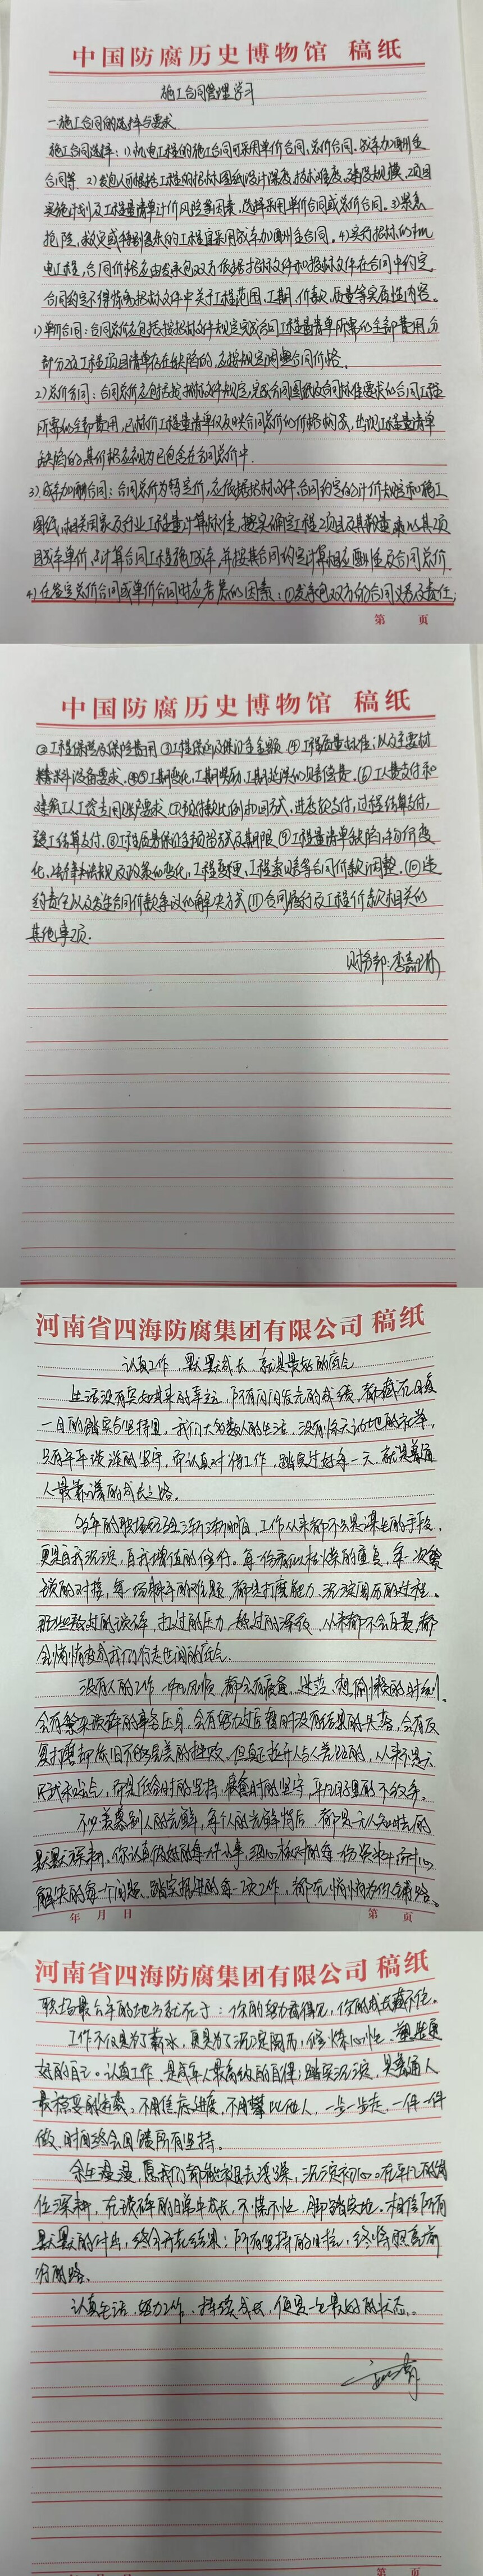 中国防腐历史博物馆 稿纸
施工合同管理学习
一.施工合同的选择与要求
施工合同选择：1)机电工程的施工合同可采用单价合同、总价合同、成本加酬金
合同等. 2)发包人应根据工程的招标图纸设计深度、技术难度、建设规模、项目
实施计划及工程量清单计价风险等因素，选择采用单价合同或总价合同。3)紧急
抢险、救灾或特别复杂的工程宜采用成本加酬金合同。4)实行招标的机
电工程，合同价格应由发承包双方依据招标文件和投标文件在合同中约定.
合同约定不得背离招标文件中关于工程范围、工期、价款、质量等实质性内容。
1)单价合同：合同总价应包括按招标文件规定完成合同工程量清单所需的全部费用，分
部分项工程项目清单存在缺陷的，应按规定调整合同价格.
2)总价合同：合同总价应包括按招标文件规定，完成合同图纸及合同标准要求的合同工程
所需的全部费用，已标价工程量清单仅反映合同总价的价格构成，出现工程量清单
缺陷的，其价格应视为已包含在合同总价中.
3)成本加酬合同：合同总价为暂定价，应依据招标文件、合同约定的计价规定和施工
图纸、相关国家及行业工程量计算标准，按实确定工程项目及其数量乘以其项
目成本单价，计算合同工程施工成本，并按其合同约定计算相应酬金及合同总价.
4)在签定总价合同或单价合同时应考虑的因素：①发承包双方的合同义务及责任；
第 页
中国防腐历史博物馆 稿纸
②工程保险及保险费用 ③工程保函及保证金金额 ④工程质量标准；以及主要材
料设备要求、⑤工期变化、工期奖励、工期延误的误期赔偿费. ⑥人工费支付和
建筑工人工资专用账户要求 ⑦预付款比例和回方式，进度款支付，过程结算支付，
竣工结算支付. ⑧工程质量保证金预留方式及期限 ⑨工程量清单缺陷，物价变
化、法律法规及政策的变化、工程变更、工程索赔等合同价款调整. ⑩违
约责任以及发生合同价款争议的解决方式 ⑪合同履行及工程价款相关的
其他事项.
财务部：李嘉
河南省四海防腐集团有限公司 稿纸
认真工作，默默成长，就是最好的底气
生活没有突如其来的幸运，所有闪闪发光的成绩，都藏在日复
一日的踏实与坚持里。我们大多数人的生活，没有惊天动地的壮举，
只有平平淡淡的坚守，而认真对待工作，踏实过好每一天，就是普通
人最靠谱的成长之路。
多年的职场经历渐渐明白，工作从来都不只是谋生的手段，
更是自我沉淀，自我增值的修行。每一份看似枯燥的重复，每一次繁
琐的对接，每一场棘手的难题，都是打磨能力、沉淀阅历的过程。
那些熬过的琐碎，扛过的压力，熬过的深夜，从来都不会白费，都
会悄悄变成我们行走世间的底气。
没有人的工作一帆风顺，都会有疲惫、迷茫、想偷懒的时刻，
会有繁杂琐碎的事务压身，会有努力过后暂时没有结果的失落，会有反
复打磨却依旧不够完美的挫败。但真正拉开人与人差距的，从来不是天
赋和运气，而是低谷时的坚持，疲惫时的坚守，平凡日子里的不放弃。
不必羡慕别人的光鲜，每个人的光鲜背后，都是无人知晓的
默默深耕。你认真做好的每一件小事，细心核对的每一份资料，耐心
解决的每一个问题，踏实推进的每一项工作，都在悄悄为你铺路。
年 月 日 第 页
河南省四海防腐集团有限公司 稿纸
职场最公平的地方就在于：你的努力看得见，你的成长藏不住。
工作不仅是为了薪水，更是为了沉淀阅历，修炼心性，塑造更
好的自己。认真工作，是成年人最高级的自律，踏实沉淀，是普通人
最稳妥的出路，不用焦虑进度，不用攀比他人，一步一步走，一件一件
做，时间终会回馈所有坚持。
余生漫漫，愿我们都能褪去浮躁，沉淀初心。在平凡的岗
位深耕，在琐碎的日常中成长，不慌不忙，脚踏实地，相信所有
默默的付出，终会开花结果，所有坚持的日子，终将照亮前
行的路。
认真生活，努力工作，持续成长，便是一生最好的状态。
第 页